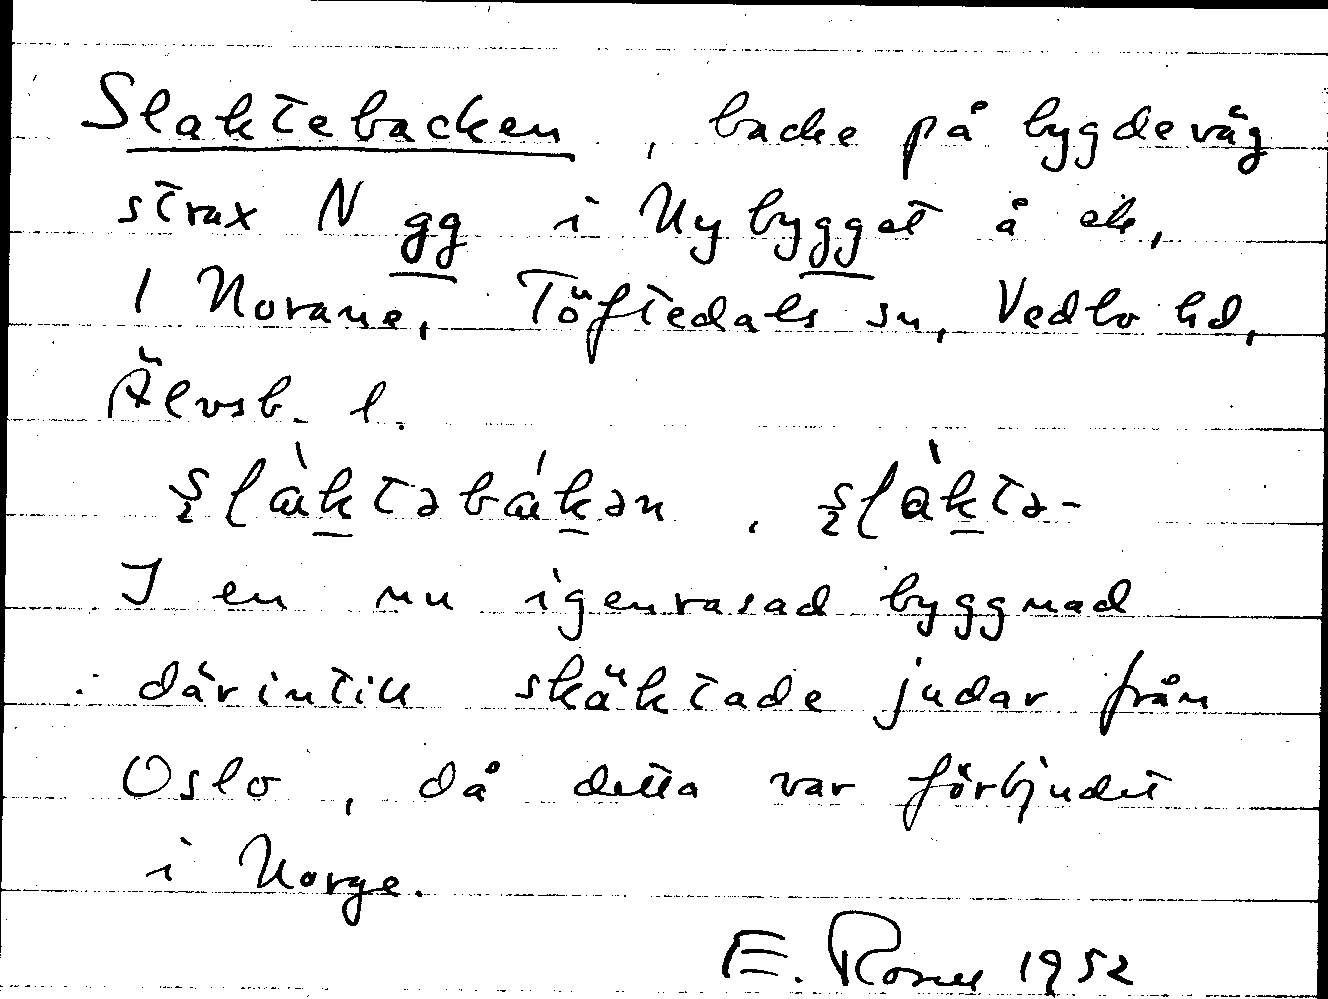 Slaktebacken, backe på bygdeväg
strax N gg i Nybygget å ek,
1 Norane, Töftedals sn, Vedbo hd,
Älvsb. l.
I en nu igenrasad byggnad
därintill skäktade judar från
Oslo, då detta var förbjudet
i Norge.
E. Rosell 1952